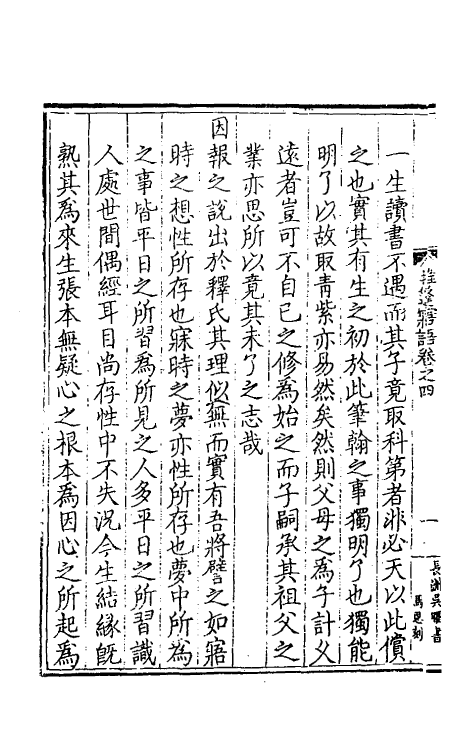 一生讀書不遇而其子竟取科第者非必天以此償
之也實其有生之初於此筆翰之事獨明了也獨能
明了以故取青紫亦易然矣然則父母之爲子計久
遠者豈可不自已之修爲始之而子嗣承其祖父之
業亦思所以竟其未了之志哉
因報之說出於釋氏其理似無而實有吾將譬之如寤
時之想性所存也寐時之夢亦性所存也夢中所為
之事皆平日之所習爲所見之人多平日之所習識
人處世間偶經耳目尚存性中不失況今生結緣旣
熟其爲來生張本無疑心之根本爲因心之所起爲
寤語卷之四
一
長洲吳曜書